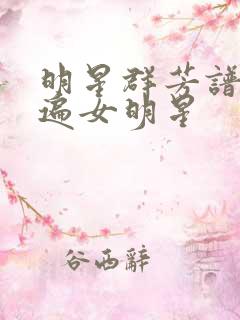 明星群芳譜
遍女明星
谷西辭